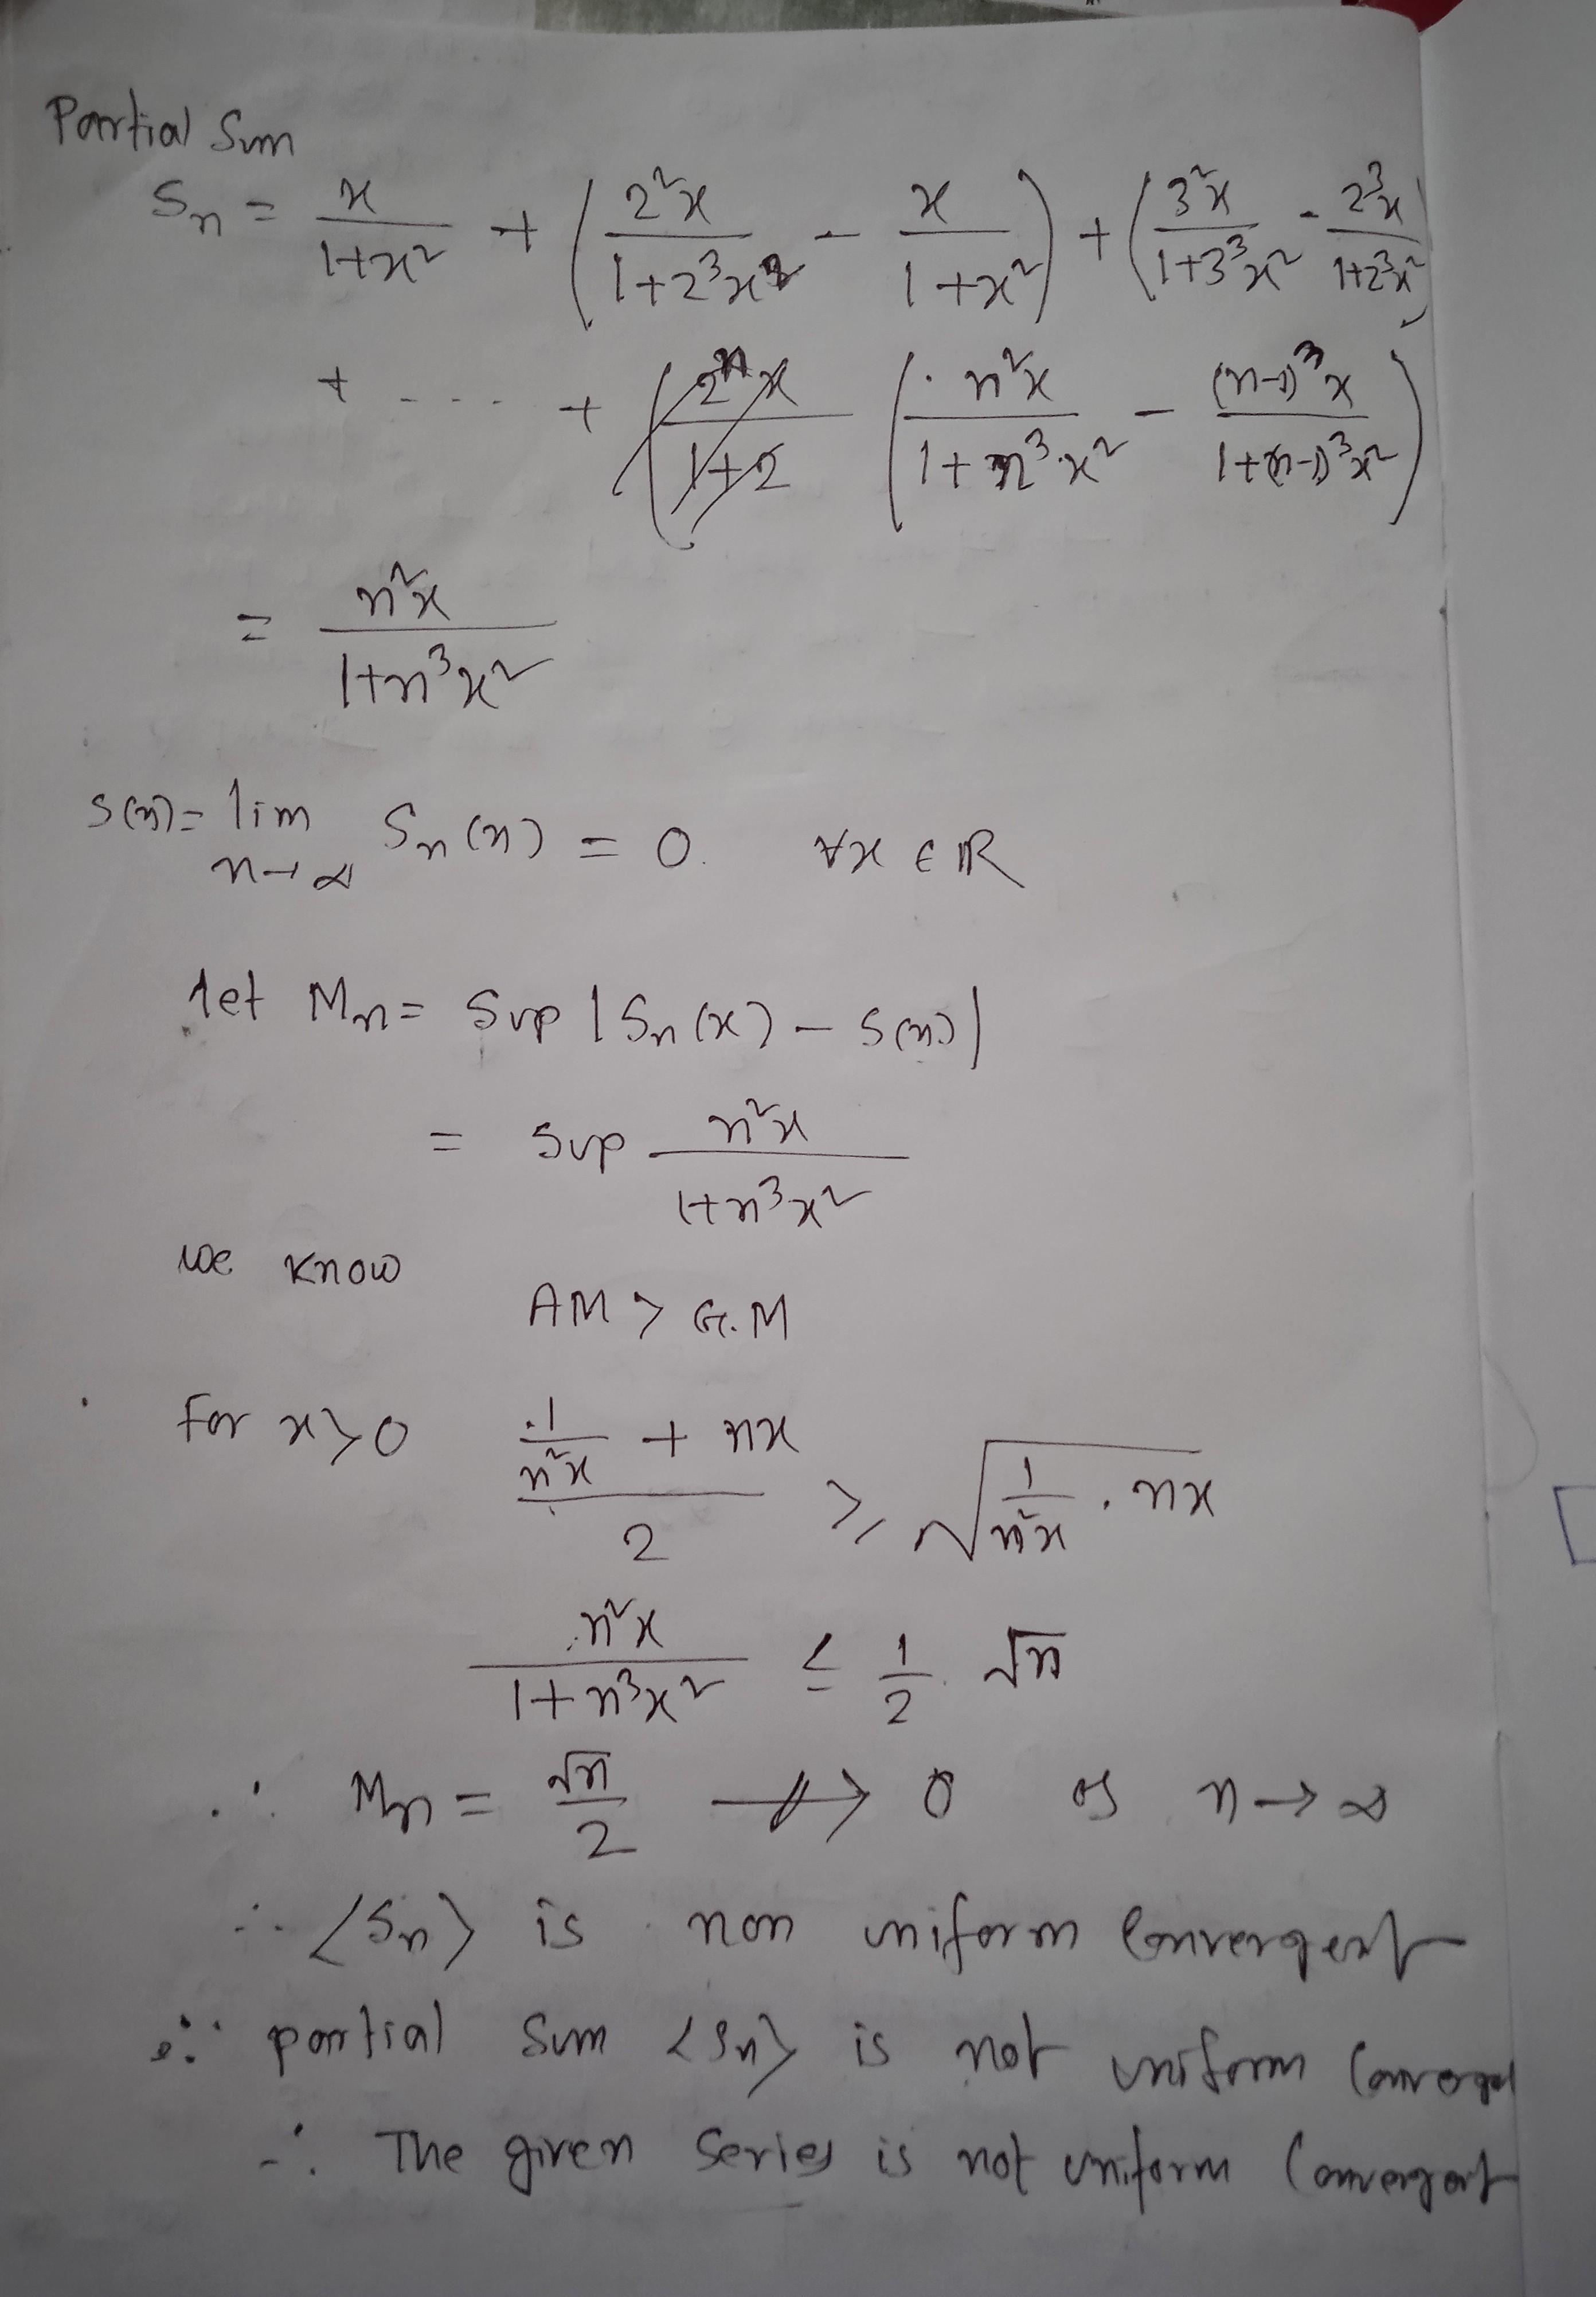 Partial Sum
Sn = x/(1+x²) + (2²x/(1+2³x²) - x/(1+x²)) + (3²x/(1+3³x²) - 2³x/(1+2³x²))
+ - - - - + (n²x/(1+n³x²) - (n-1)³x/(1+(n-1)³x²))
= n²x/(1+n³x²)
S(x) = lim n→∞ Sn(x) = 0. ∀x ∈ ℝ
let Mn = Sup |Sn(x) - S(x)|
= Sup n²x/(1+n³x²)
we know
AM > G.M
For x>0 (1/(n²x) + nx)/2 ≥ √(1/(n²x) . nx)
n²x/(1+n³x²) ≤ 1/2 . √n
∴ Mn = √n/2 ↛ 0 as n→∞
∴ <Sn> is non uniform Convergent
∴ partial Sum <Sn> is not uniform Convergent
∴ The given Series is not uniform Convergent